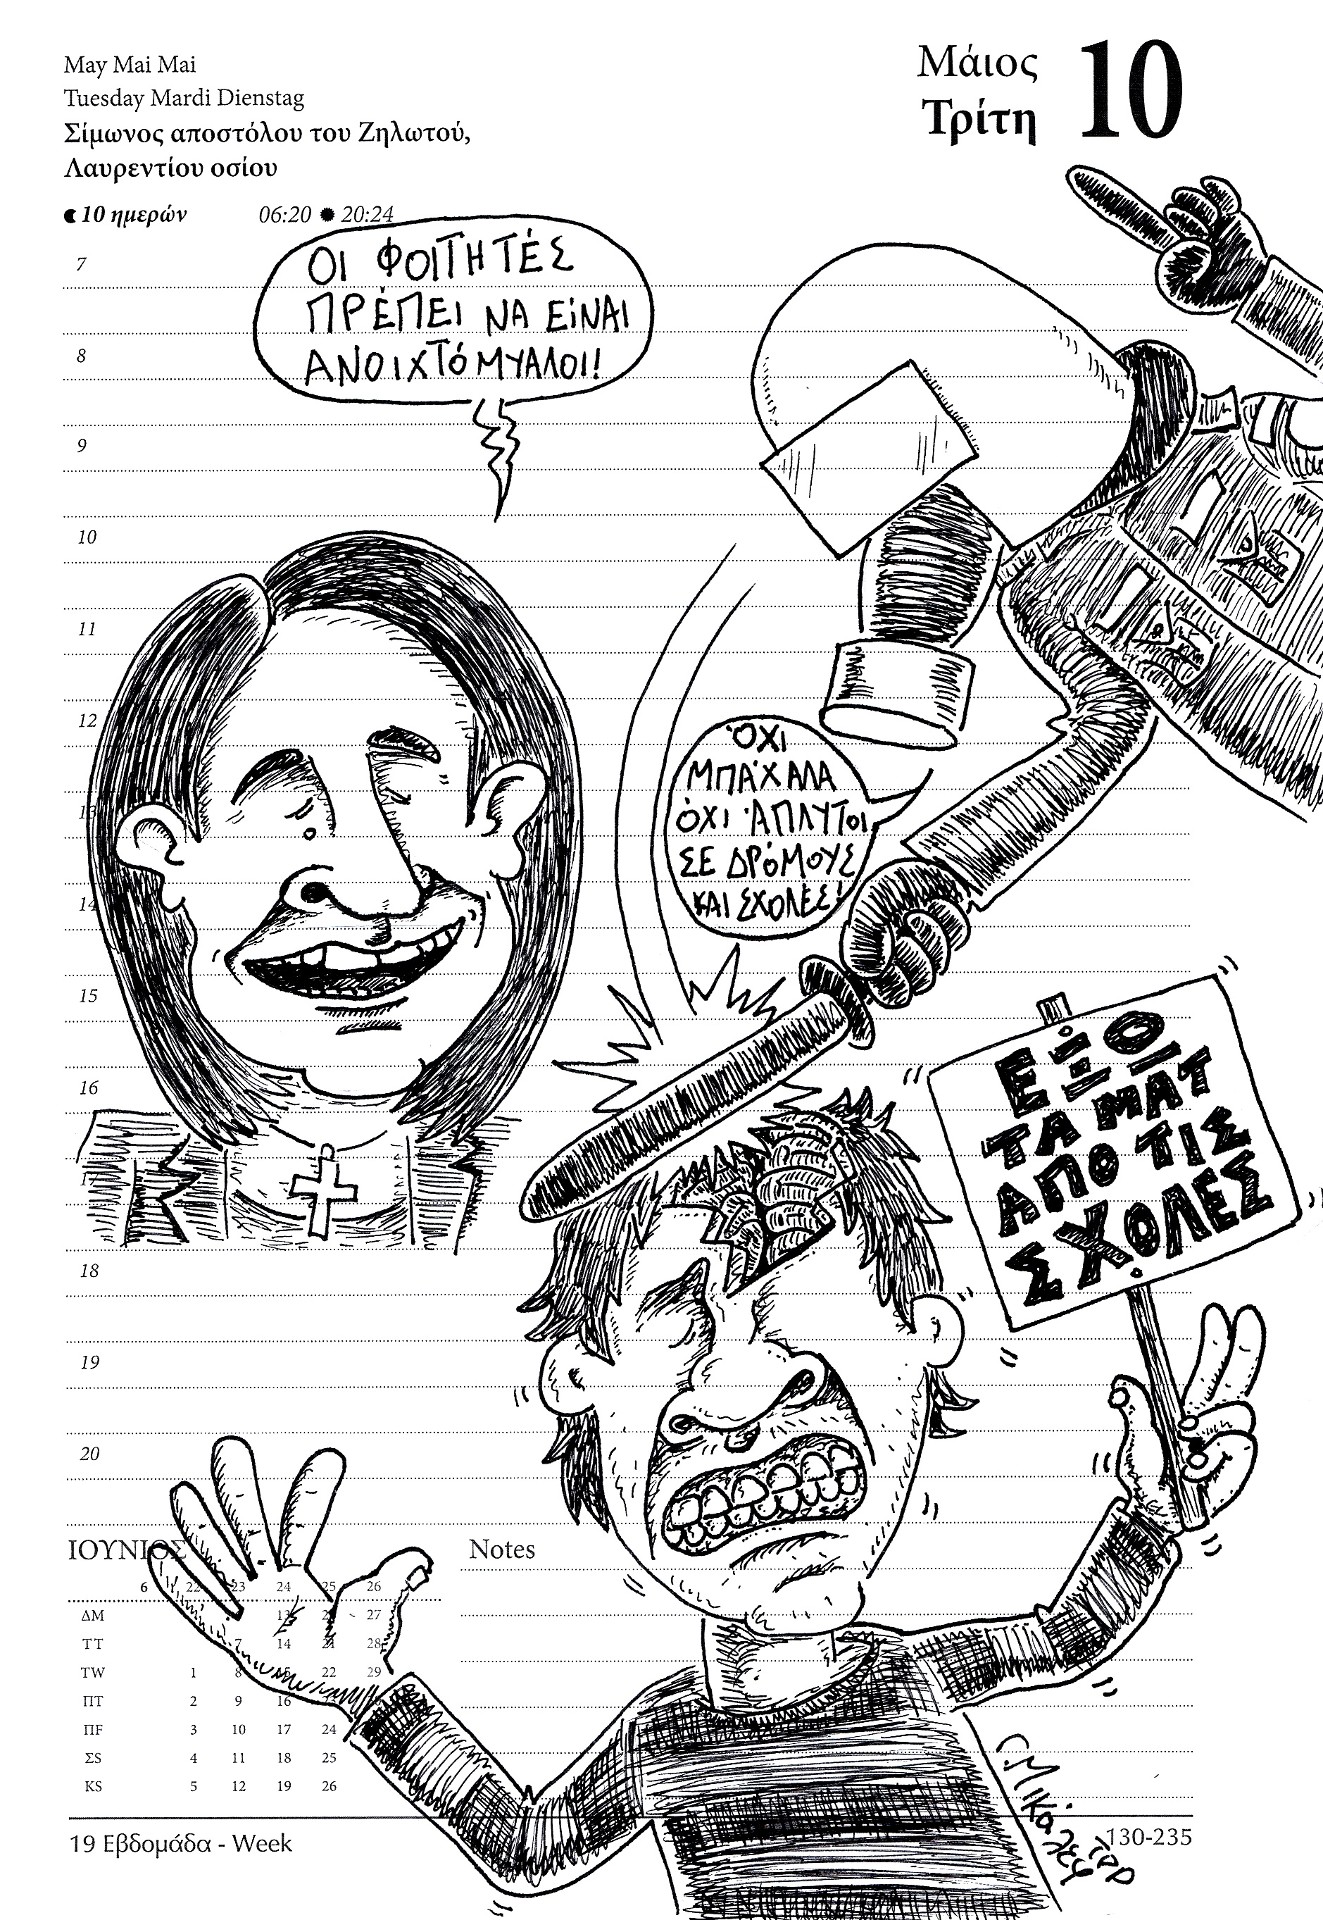 May Mai Mai
Tuesday Mardi Dienstag
Σίμωνος αποστόλου του Ζηλωτού,
Λαυρεντίου οσίου
10 ημερών 06:20 20:24
Μάιος
Τρίτη
10
ΟΙ ΦΟΙΤΗΤΈΣ
ΠΡΈΠΕΙ ΝΑ ΕΊΝΑΙ
ΑΝΟΙΧΤΌΜΥΑΛΟΙ!
7
8
9
10
11
12
13
14
15
16
17
18
19
20
ΌΧΙ
ΜΠΆΧΑΛΑ
ΌΧΙ ΆΠΛΥΤΟΙ
ΣΕ ΔΡΌΜΟΥΣ
ΚΑΙ ΣΧΟΛΕΣ!
ΕΞΩ
ΤΑ ΜΑΤ
ΑΠΟ ΤΙΣ
ΣΧΟΛΕΣ
ΙΟΥΝΙΟΣ
6 22 23 24 25 26
ΔΜ 13 27
ΤΤ 7 14 21 28
TW 1 8 15 22 29
ΠΤ 2 9 16
ΠF 3 10 17 24
ΣS 4 11 18 25
KS 5 12 19 26
Notes
19 Εβδομάδα - Week
130-235